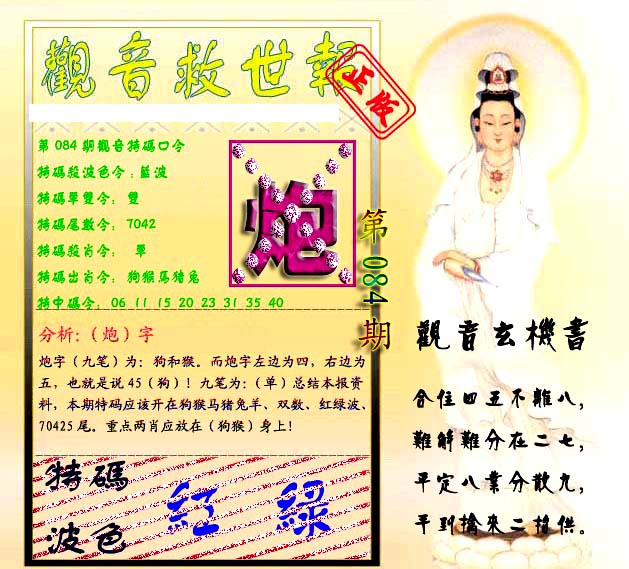 觀音救世報
正版
第084期觀音特碼口令
特碼殺波色令:藍波
特碼單雙令: 雙
特碼尾數令: 7042
特碼殺肖令: 單
特碼出肖令: 狗猴馬猪兔
特中碼令: 06 11 15 20 23 31 35 40
炮
第084期
分析:(炮)字
炮字（九笔）为：狗和猴。而炮字左边为四，右边为
五，也就是说45（狗）！九笔为：（单）总结本报资
料，本期特码应该开在狗猴马猪兔羊、双数、红绿波、
70425尾。重点两肖应放在（狗猴）身上！
特碼
波色
紅 綠
觀音玄機書
合住四五不離八，
難解難分在二七，
平定八業分散九，
平到擒來二提供。